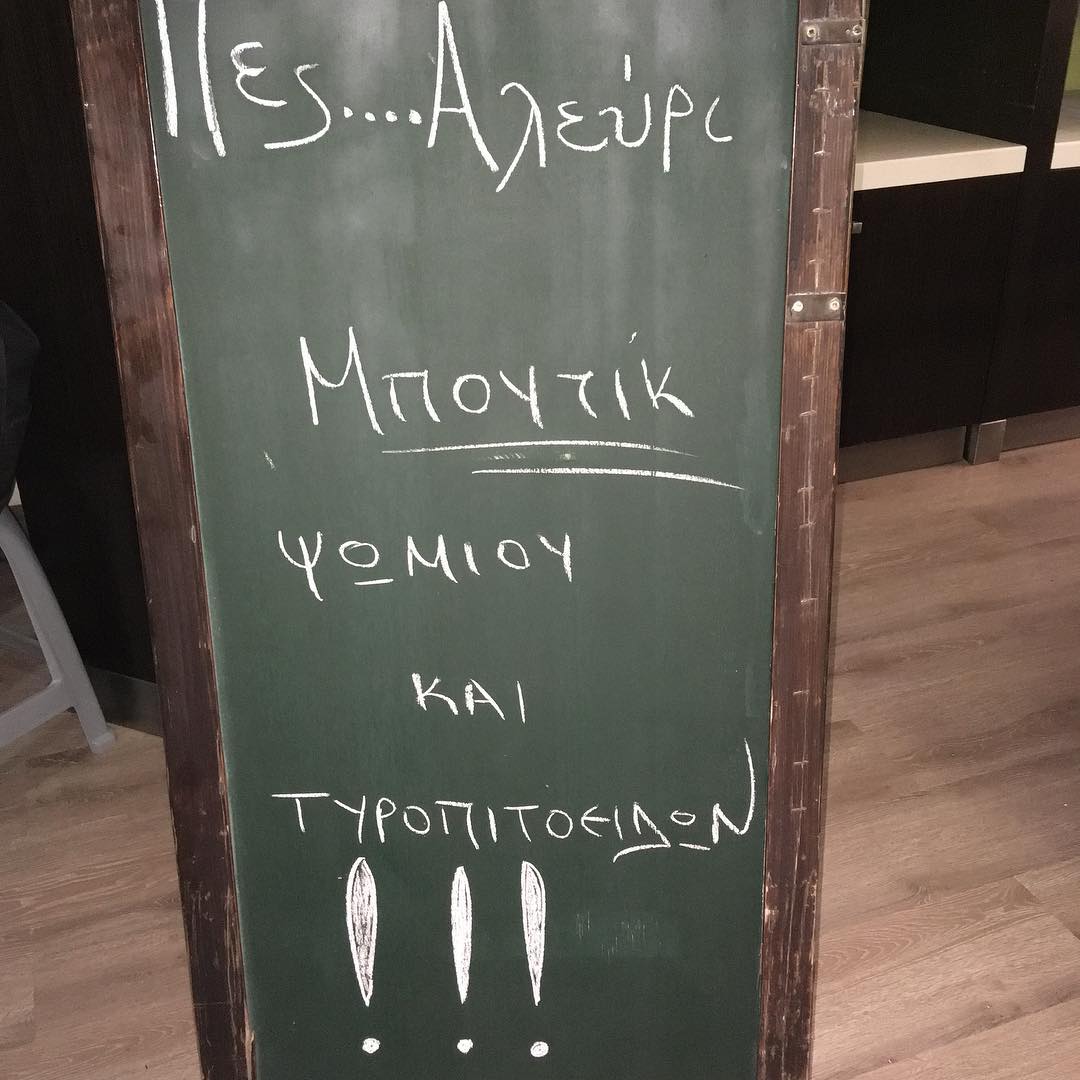 Πες....Αλεύρι
Μπουτίκ
ΨΩΜΙΟΥ
ΚΑΙ
ΤΥΡΟΠΙΤΟΕΙΔΩΝ
!!!